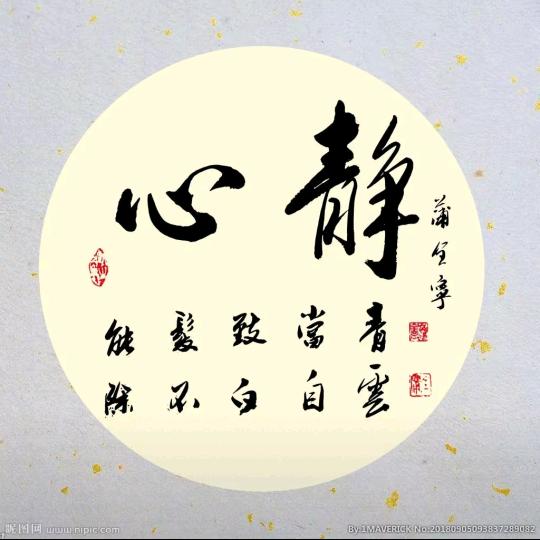 静心
蒲 寧
青雲
當自
致白
髮不
能除
昵图网 www.nipic.com
By:1MAVERICK No:20180905093837289082